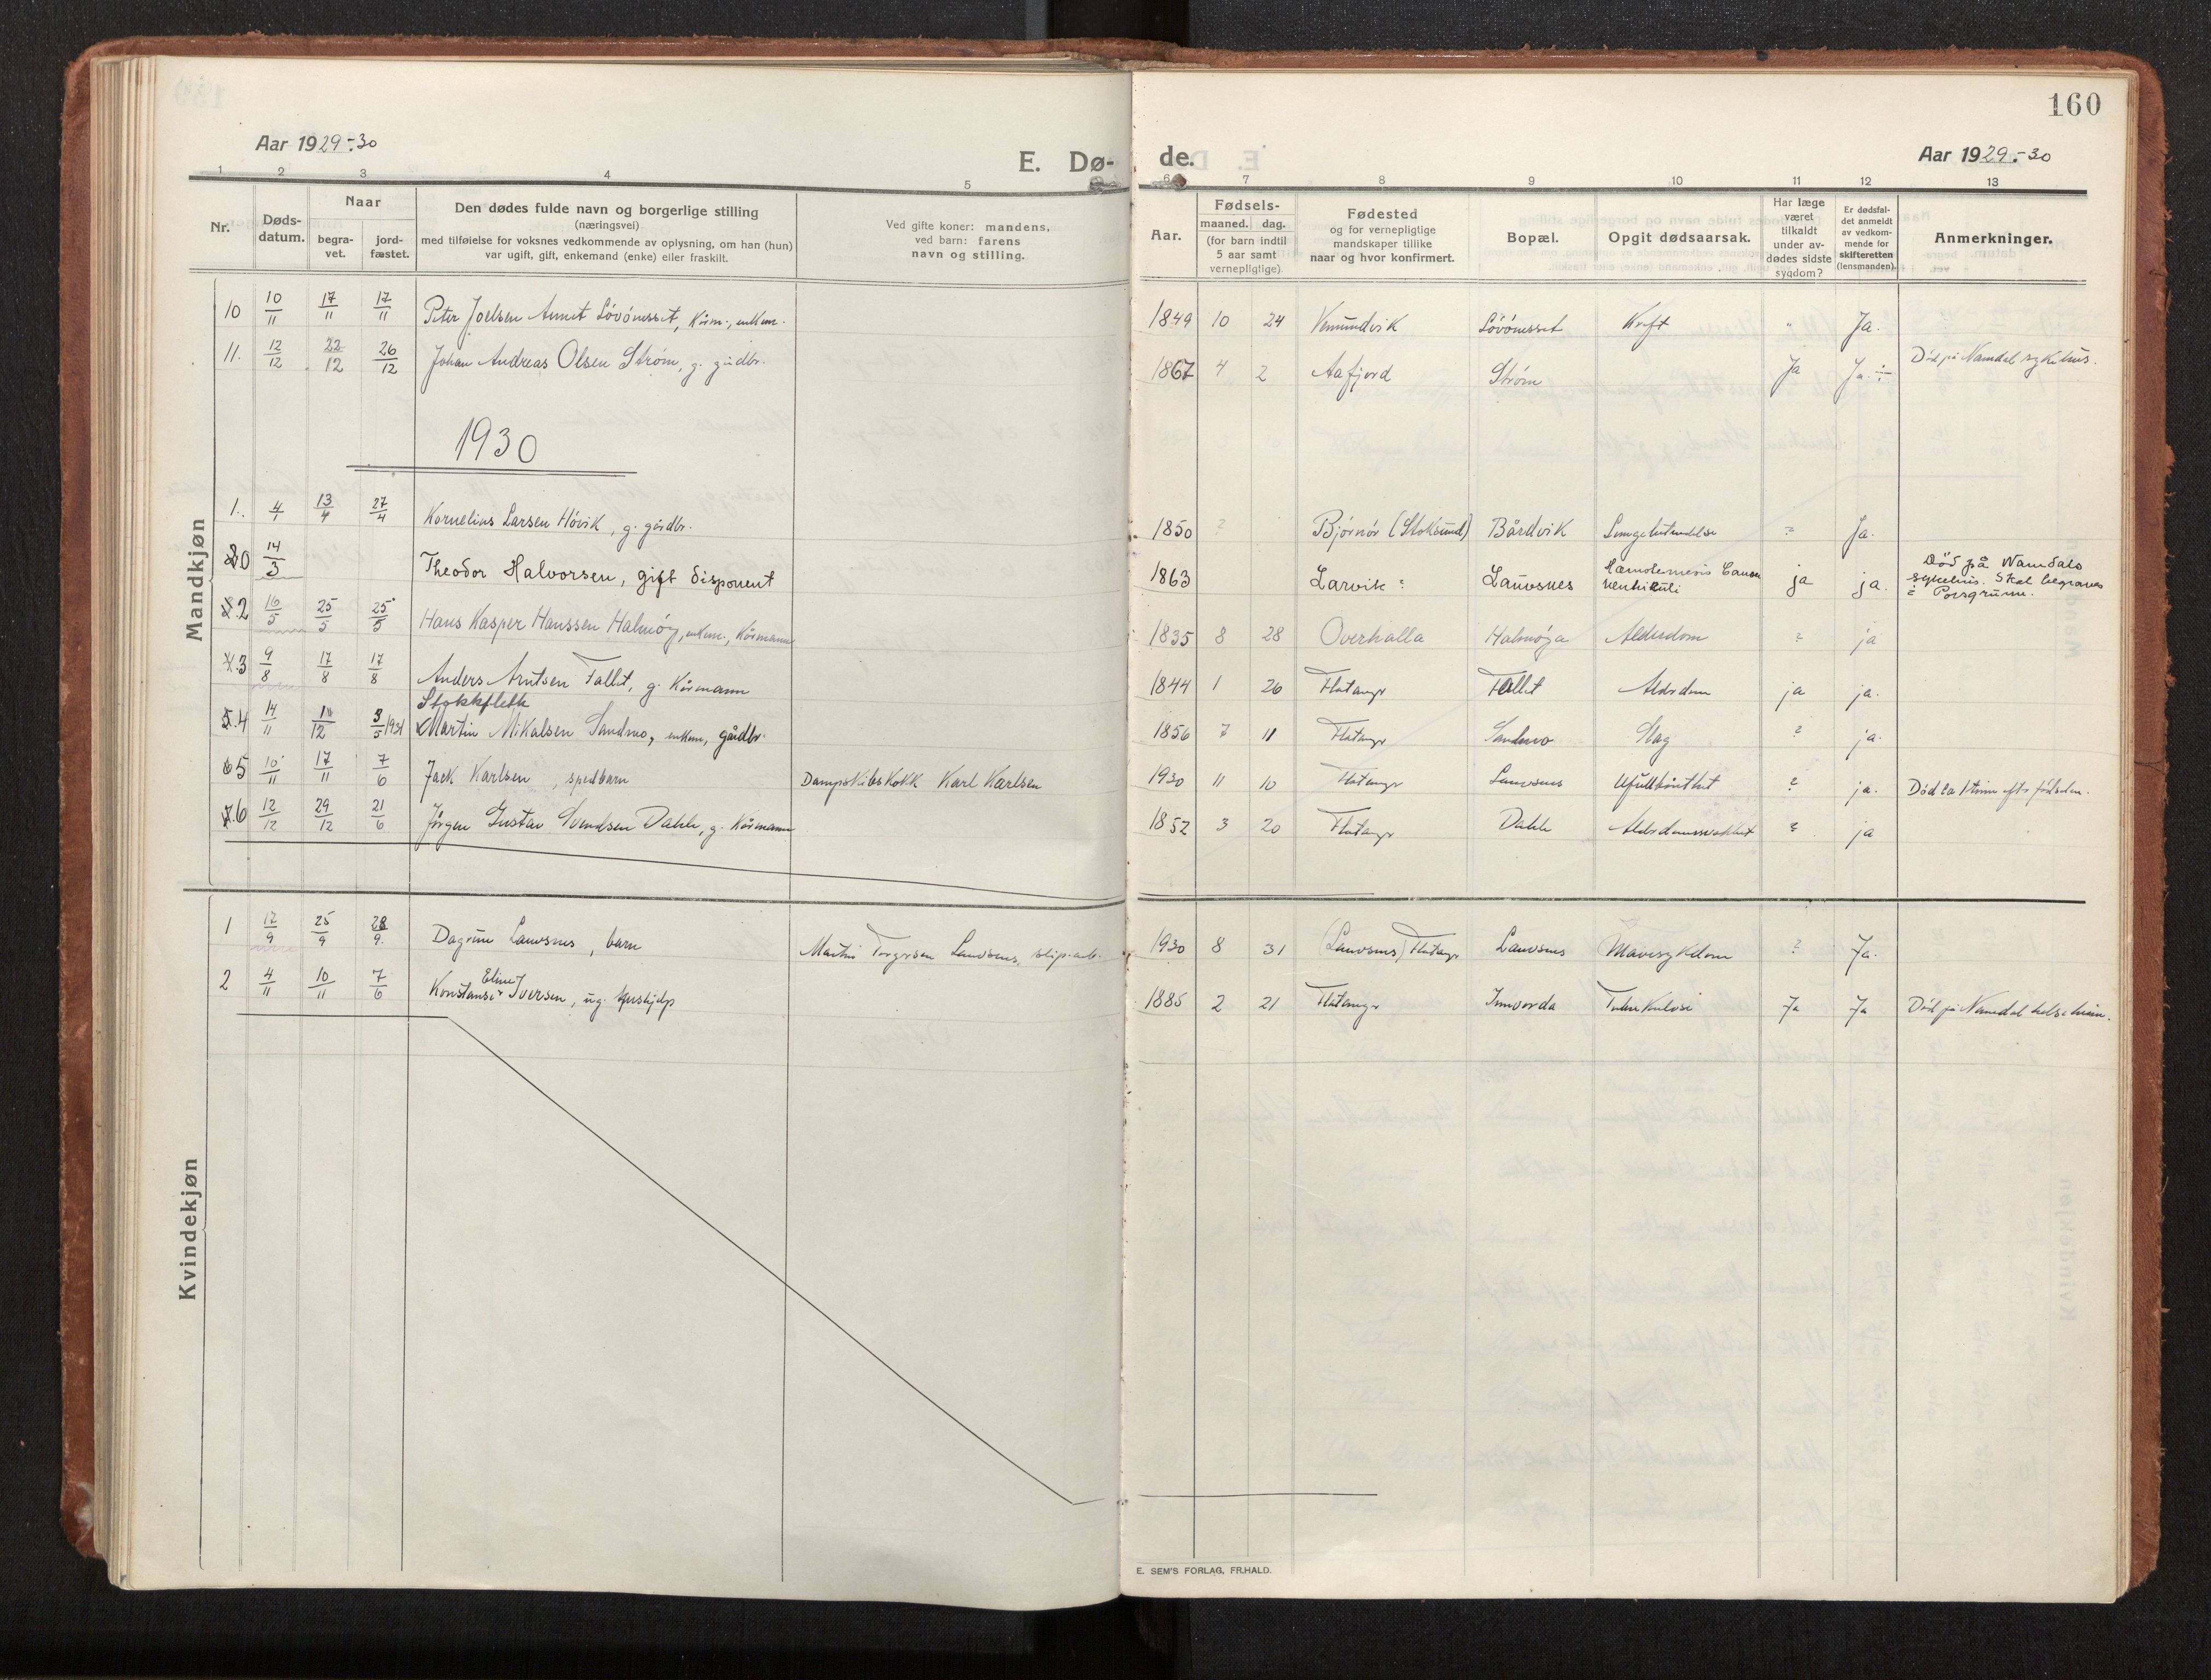 160
Aar 1929-30
E. Dø-
de.
Aar 1929-30
1 2 3 4 5 6 7 8 9 10 11 12 13
Nr.
Døds-
datum.
Naar
begra-
vet.
jord-
fæstet.
Den dødes fulde navn og borgerlige stilling
(næringsvei)
med tilføielse for voksnes vedkommende av oplysning, om han (hun)
var ugift, gift, enkemand (enke) eller fraskilt.
Ved gifte koner: mandens,
ved barn: farens
navn og stilling.
Aar.
Fødsels-
maaned. dag.
(for barn indtil
5 aar samt
vernepligtige)
Fødested
og for vernepligtige
mandskaper tillike
naar og hvor konfirmert.
Bopæl.
Opgit dødsaarsak.
Har læge
været
tilkaldt
under av-
dødes sidste
sygdom?
Er dødsfal-
det anmeldt
av vedkom-
mende for
skifteretten
(lensmanden).
Anmerkninger.
Mandkjøn
10 10/11 17/11 17/11 Peter Joelsen Løvømsset, Kårm., enkem. 1849 10 24 Vemundvik Løvømsset Kreft " Ja.
11. 12/12 22/12 26/12 Johan Andreas Olsen Strøm, g. gårdbr. 1867 4 2 Aafjord Strøm Ja Ja ÷ Død på Namdal sykehus.
1930
1. 13/4 27/4 Kornelius Larsen Høvik, g. gårdbr. 1850 ? Bjørnør (Stoksund) Bårdvik ? Ja.
14/3 Theodor Halvorsen, gift disponent 1863 Larvik ? Lauvsnes ja ja. Död på Namdals
sykehus. Skal begraves
i Porsgrunn.
2 16/5 25/5 25/5 Hans Kasper Hanssen Halmøy, enkem., Kårmann 1835 8 28 Overhalla Halmøya Alderdom ? ja
3 9/8 17/8 17/8 Anders Arntsen Fallet, g. Kårmann 1844 1 26 Flatanger Fallet Alderdom ja ja.
Stokkfleth
4 14/11 1/12 3/5 1931 Martin Mikalsen Sandmo, enkem, gårdbr. 1856 7 11 Flatanger Sandmo Slag ? ja.
5 10/11 17/11 7/6 Jack Karlsen, spedbarn Dampskibskokk Karl Karlsen 1930 11 10 Flatanger Lauvsnes Ufullbåretthet ? ja. Død ca 1 time efter fødselen.
6 12/12 29/12 21/6 Jørgen Gustav Svendsen Dahle, g. Kårmann 1852 3 20 Flatanger Dahle Alderdomssvakhet ? ja
Kvindekjøn
1 17/9 25/9 28/9. Dagrun Lauvsnes, barn Martin Torgersen Lauvsnes, slip.arb. 1930 8 31 (Lauvsnes) Flatanger Lauvsnes Mavesykdom ? Ja.
2 4/11 10/11 7/6 Konstanse Eline Iversen, ug. hushjelp 1885 2 21 Flatanger Innvorda Tuberkulose Ja Ja Død på Namdal helseheim.
E. SEM'S FORLAG, FR.HALD.